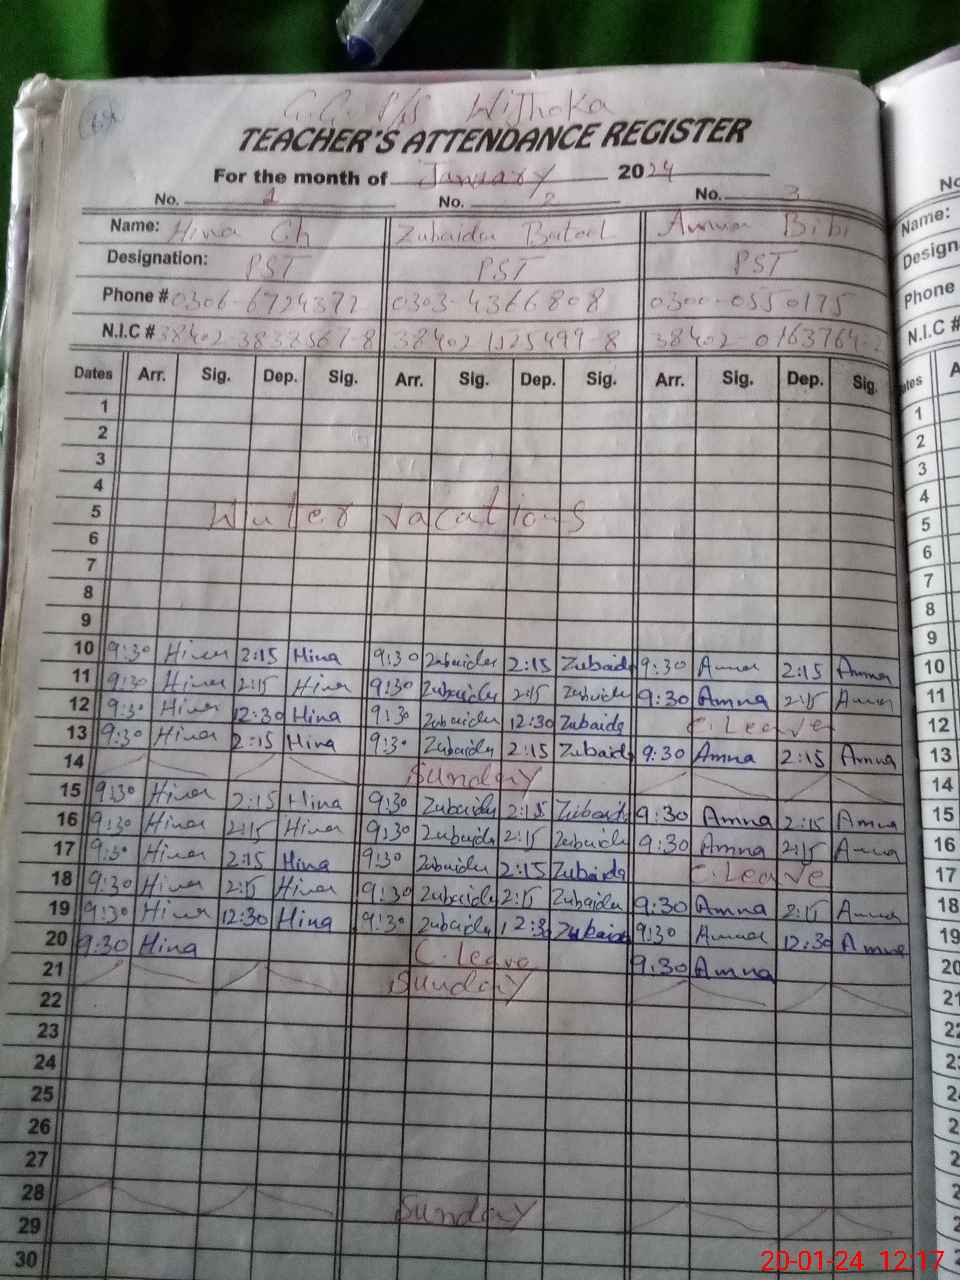 G.G. P/S Wijhoka
TEACHER'S ATTENDANCE REGISTER
For the month of January 2024
No. 1 No. 2 No. 3
Name: Hina Ch Zubaida Batool Amna Bibi
Designation: PST PST PST
Phone # 0306-6724372 0303-4366808 0300-0550175
N.I.C # 38402-3837567-8 38402 1125499-8 38402-0163764-
Dates Arr. Sig. Dep. Sig. Arr. Sig. Dep. Sig. Arr. Sig. Dep. Sig.
1
2
3
4
5 Winter vacations
6
7
8
9
10 9:30 Hina 2:15 Hina 9:30 Zubaida 2:15 Zubaida 9:30 Amna 2:15 Amna
11 9:30 Hina 2:15 Hina 9:30 Zubaida 2:15 Zubaida 9:30 Amna 2:15 Amna
12 9:30 Hina 12:30 Hina 9:30 Zubaida 12:30 Zubaida C. Leave
13 9:30 Hina 2:15 Hina 9:30 Zubaida 2:15 Zubaida 9:30 Amna 2:15 Amna
14 Sunday
15 9:30 Hina 2:15 Hina 9:30 Zubaida 2:15 Zubaida 9:30 Amna 2:15 Amna
16 9:30 Hina 2:15 Hina 9:30 Zubaida 2:15 Zubaida 9:30 Amna 2:15 Amna
17 9:30 Hina 2:15 Hina 9:30 Zubaida 2:15 Zubaida C. Leave
18 9:30 Hina 2:15 Hina 9:30 Zubaida 2:15 Zubaida 9:30 Amna 2:15 Amna
19 9:30 Hina 12:30 Hina 9:30 Zubaida 12:30 Zubaida 9:30 Amna 12:30 Amna
20 9:30 Hina C. Leave 9:30 Amna
21 Sunday
22
23
24
25
26
27
28 Sunday
29
30
No
Name:
Design
Phone
N.I.C #
ates A
1
2
3
4
5
6
7
8
9
10
11
12
13
14
15
16
17
18
19
20
21
22
23
20-01-24 12:17